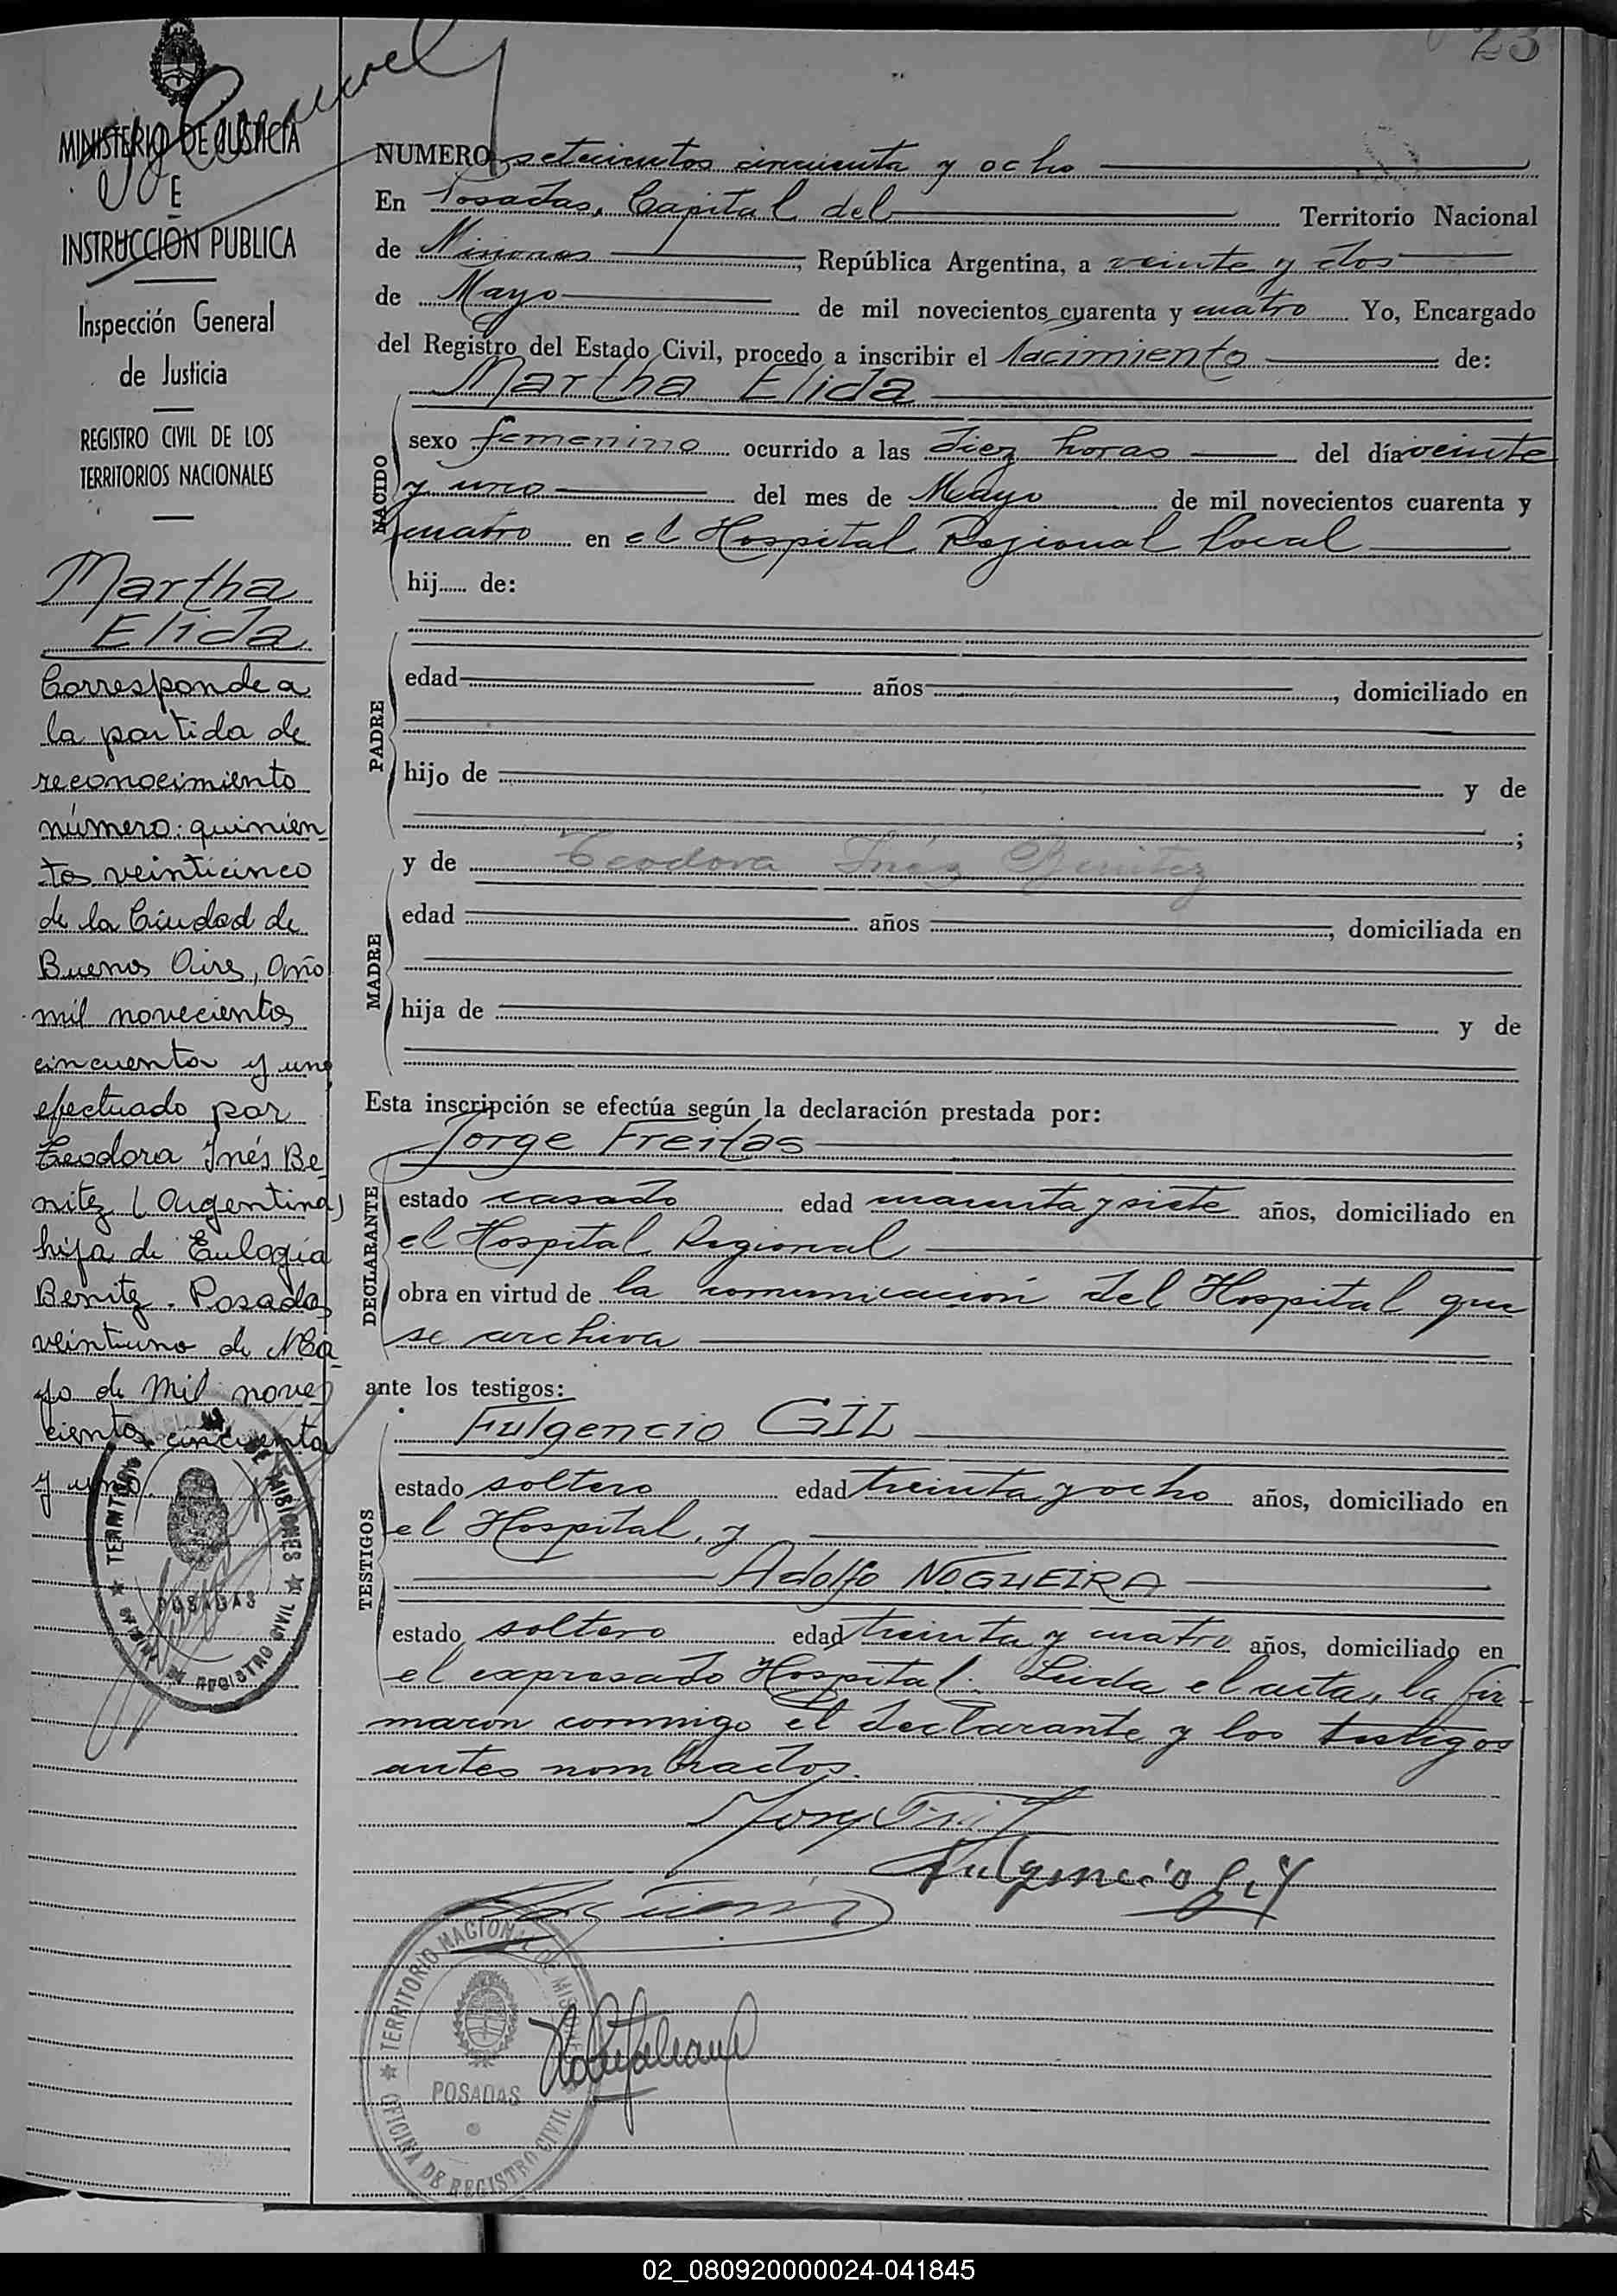 23
MINISTERIO DE JUSTICIA
E
INSTRUCCIÓN PUBLICA
Inspección General
de Justicia
REGISTRO CIVIL DE LOS
TERRITORIOS NACIONALES
Martha
Elida
Corresponde a
la partida de
reconocimiento
número: quinien
tos veinticinco
de la Ciudad de
Buenos Aires, año
mil novecientos
cincuenta y uno
efectuado por
Teodora Inés Be
nitez (Argentina)
hija de Eulogia
Benitez. Posadas
veintiuno de Ma
yo de Mil nove
cientos cincuenta
y uno.
TERRITORIO DE MISIONES
POSADAS
OFICINA DE REGISTRO CIVIL
NUMERO setecientos cincuenta y ocho
En Posadas, Capital del Territorio Nacional
de Misiones, República Argentina, a veinte y dos
de Mayo de mil novecientos cuarenta y cuatro Yo, Encargado
del Registro del Estado Civil, procedo a inscribir el Nacimiento de:
Martha Elida
NACIDO
sexo femenino ocurrido a las diez horas del día veinte
y uno del mes de Mayo de mil novecientos cuarenta y
cuatro en el Hospital Regional local
hij...... de:
PADRE
edad años, domiciliado en
hijo de y de
;
MADRE
y de Teodora Inéz Benitez
edad años, domiciliada en
hija de y de
Esta inscripción se efectúa según la declaración prestada por:
Jorge Freitas
DECLARANTE
estado casado edad cuarenta y siete años, domiciliado en
el Hospital Regional
obra en virtud de la comunicación del Hospital que
se archiva
ante los testigos:
Fulgencio GIL
TESTIGOS
estado soltero edad treinta y ocho años, domiciliado en
el Hospital, y
Adolfo NOGUEIRA
estado soltero edad treinta y cuatro años, domiciliado en
el expresado Hospital. Leida el acta, la fir-
maron conmigo el declarante y los testigos
antes nombrados.
Fulgencio Gil
TERRITORIO NACIONAL DE MISIONES
POSADAS
OFICINA DE REGISTRO CIVIL
02_080920000024-041845